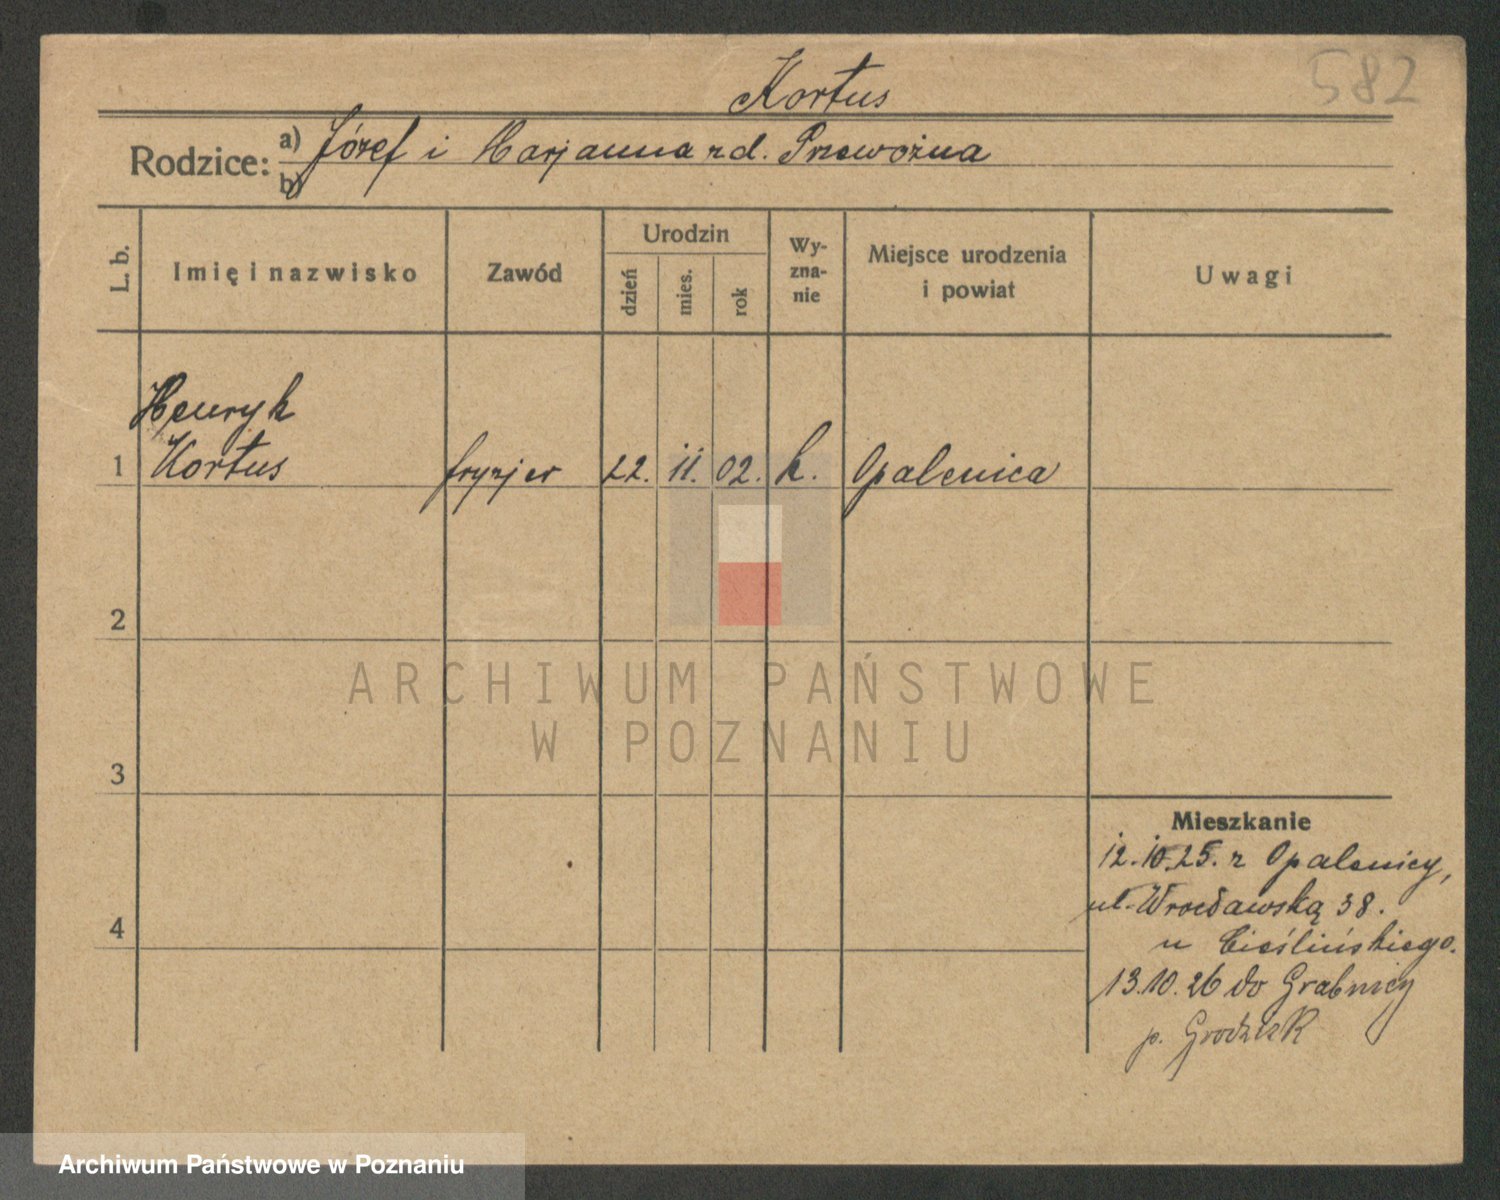 Kortus
582
Rodzice: a) Józef i Marjanna zd. Przewożna
b)
L. b.
Imię i nazwisko
Zawód
Urodzin
dzień
mies.
rok
Wy-
zna-
nie
Miejsce urodzenia
i powiat
Uwagi
Henryk
1 Kortus fryzjer 22. 11. 02. k. Opalenica
2
3
4
Mieszkanie
12.10.25. z Opalenicy,
ul. Wrocławską 38.
u Cieślińskiego.
13.10.26 do Grabnicy
p. Grodzisk
ARCHIWUM PAŃSTWOWE
W POZNANIU
Archiwum Państwowe w Poznaniu